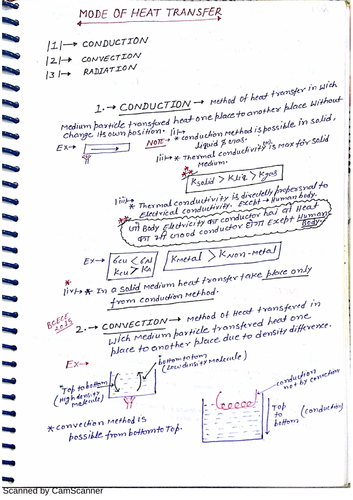 MODE OF HEAT TRANSFER
|1|→ CONDUCTION
|2|→ CONVECTION
|3|→ RADIATION
1.→ CONDUCTION → Method of heat transfer in wich
Medium particle transfered heat one place to another place without
change its own position.
Ex→
Note → |i|→ * conduction Method is possible in solid,
liquid & gas.
|ii|→ * Thermal conductivity is max for solid
Medium.
Ksolid > KLiq. > Kgas
|iii|→ * Thermal conductivity is directelly propersnal to
electrical conductivity. Except → Human body.
जो Body Eletricity का conductor होगा वो Heat
का भी Good conductor होगा Except Human
Body.
Ex→
KCu > KA
KMetal > KNon-Metal
|iv|→ * In a solid Medium heat transfer take place only
from conduction Method.
BCECE
2015
2.→ CONVECTION → Method of Heat transfered in
wich Medium particle transfered heat one
place to another place due to density difference.
Ex→
bottom to tom
(Low density Molecule)
Top to bottom
(High density
Molecule)
* convection Method is
possible from bottom to Top.
conduction
not by convection
Top
to
bottom
(conduction)
Scanned by CamScanner